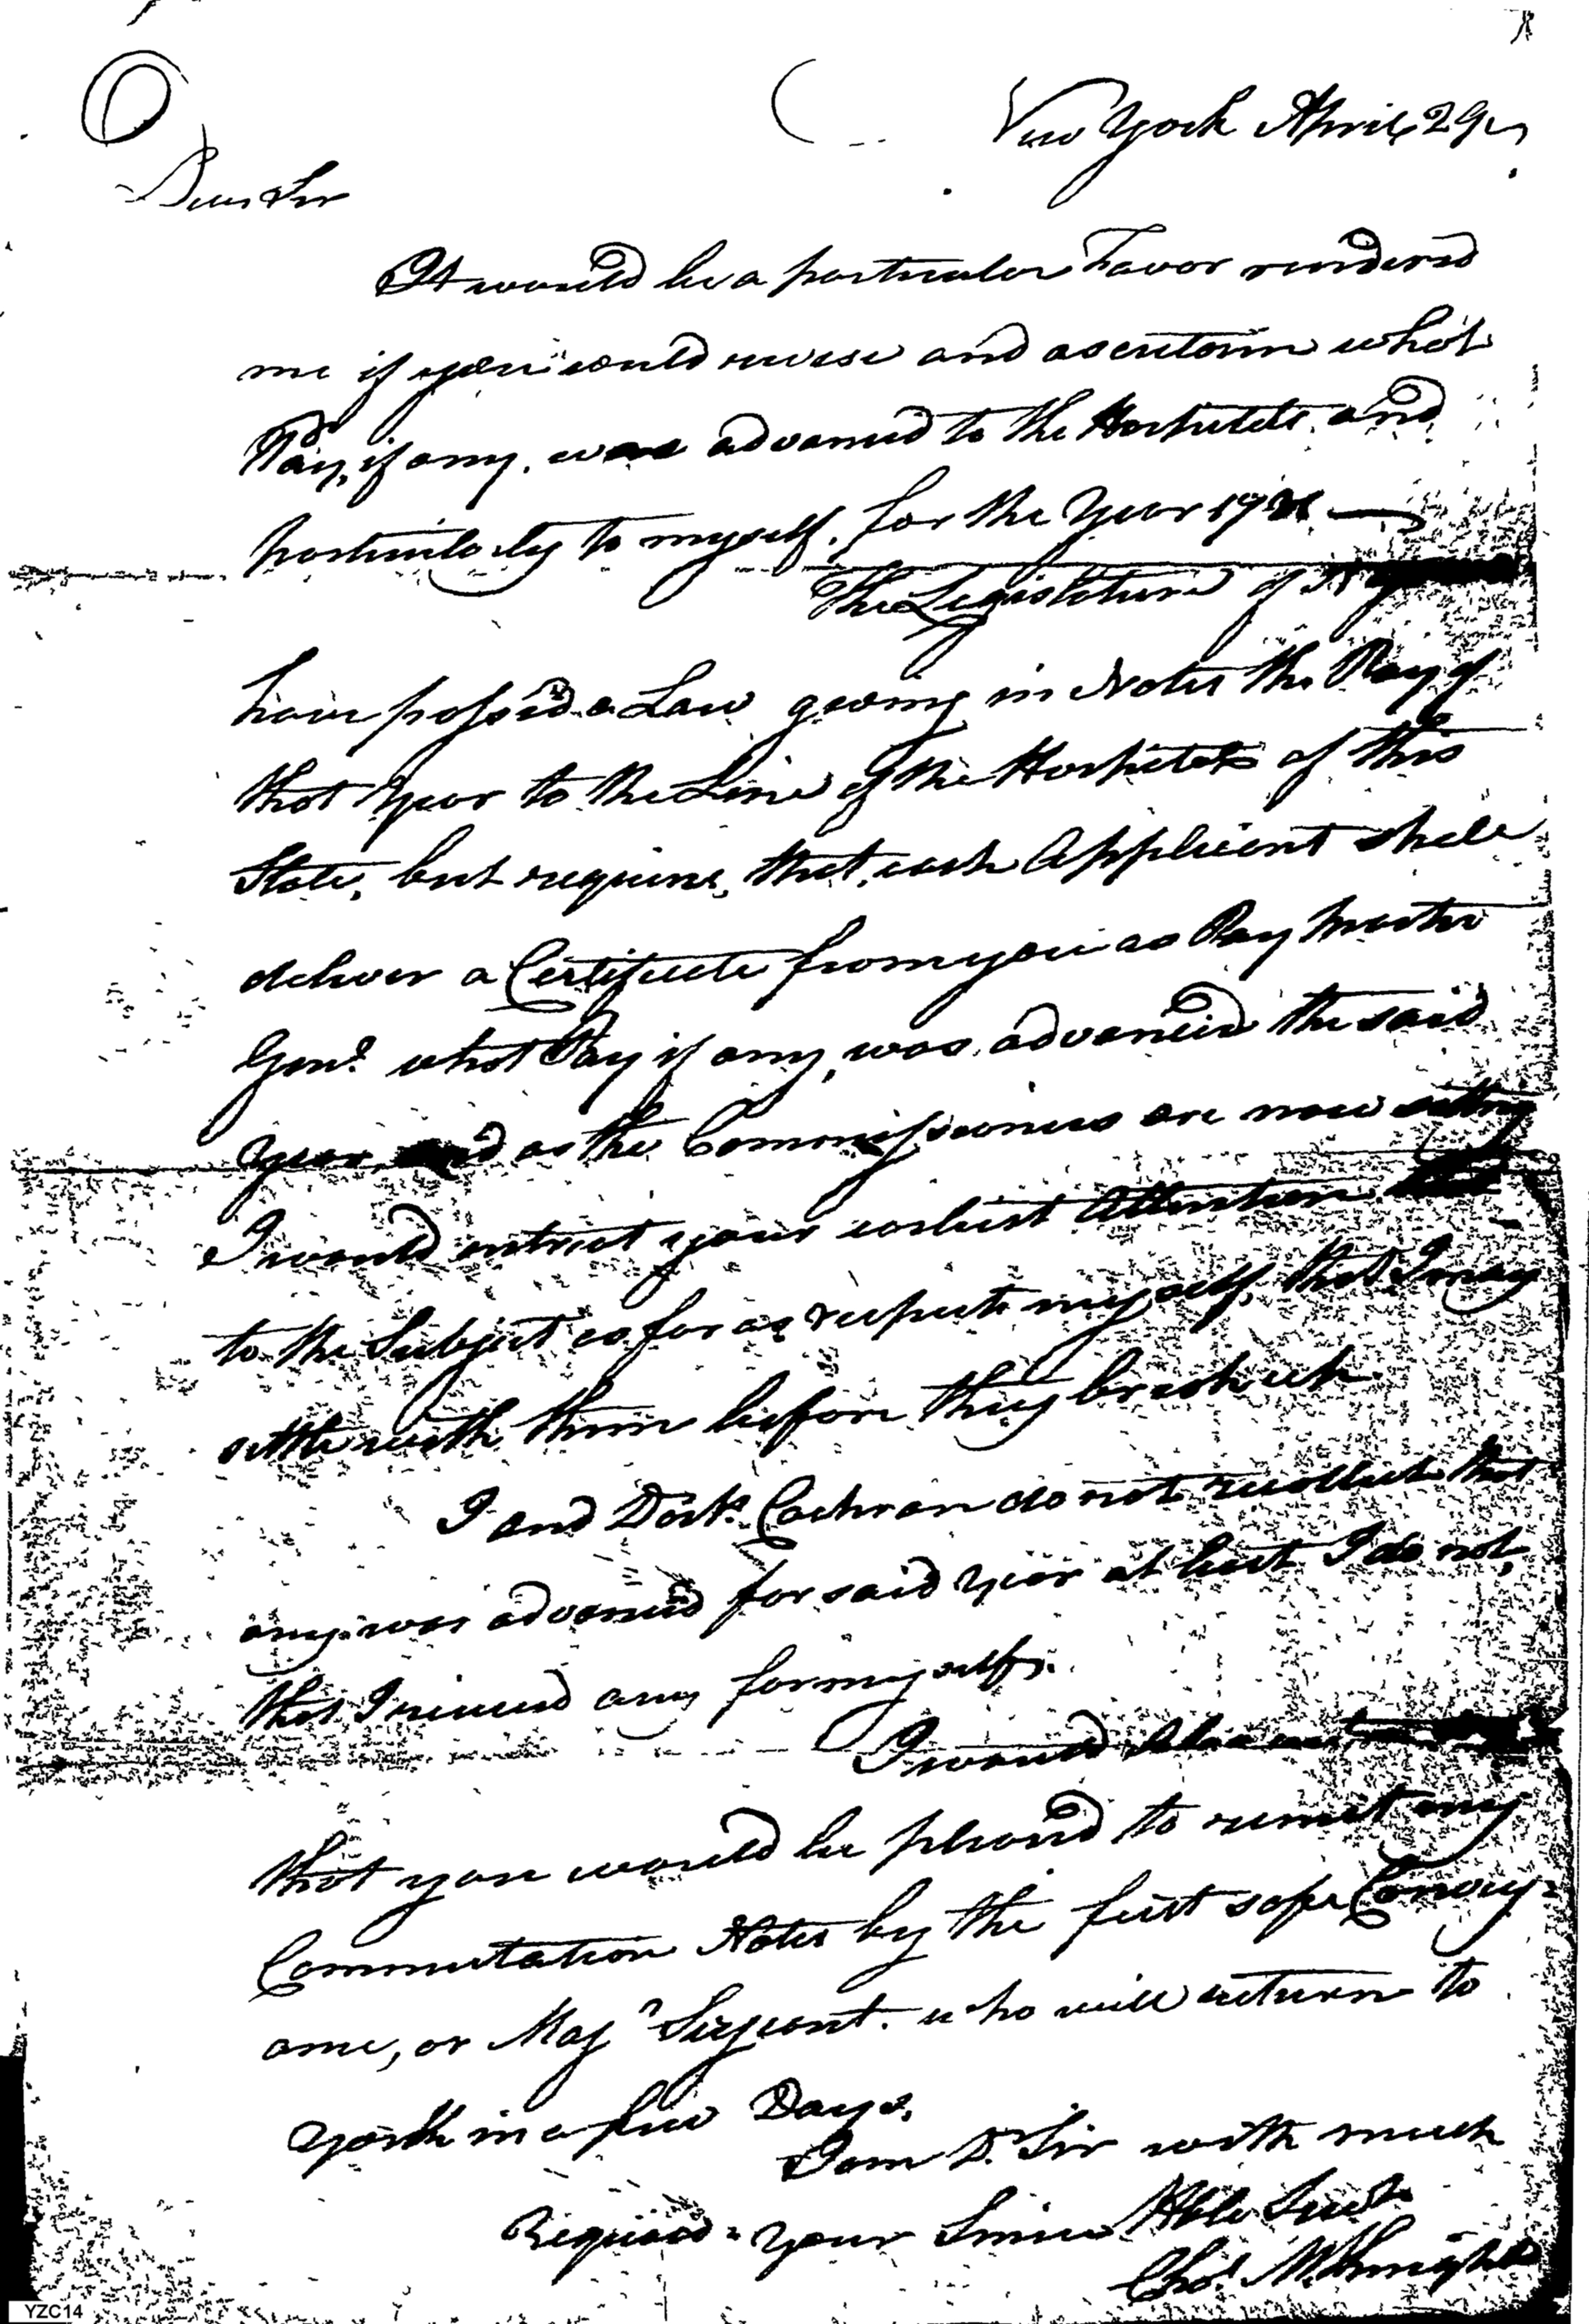 New York April 29
Dear Sir
It would be a particular Favor rendered
me if you would and ascertain what
Pay, if any, was advanced to the Hospitals, and
particularly to myself, for the Year
The Legislature of
have passed a Law giving in Notes the Pay of
that Year to the Line of the Hospitals of this
State, but requires, that, each Applicant shall
deliver a Certificate from you as Pay Master
Genl. what Pay if any, was advanced the said
Year, and as the Commissioners are now sitting
I would entreat your earliest Attention
to the Subject as far as respects myself, that I may
settle with them before they break up.
I and Doctr. Cochran do not recollect that
any was advanced for said Year at least I do not,
that I received any for myself.
I would also
that you would be pleased to remit my
Commutation Notes by the first safe Convey-
ance, or Majr Sergeant. who will return to
York in a few Days.
I am D. Sir with much
Required your Sincere Hble Servt
Chas. McKnight
YZC14